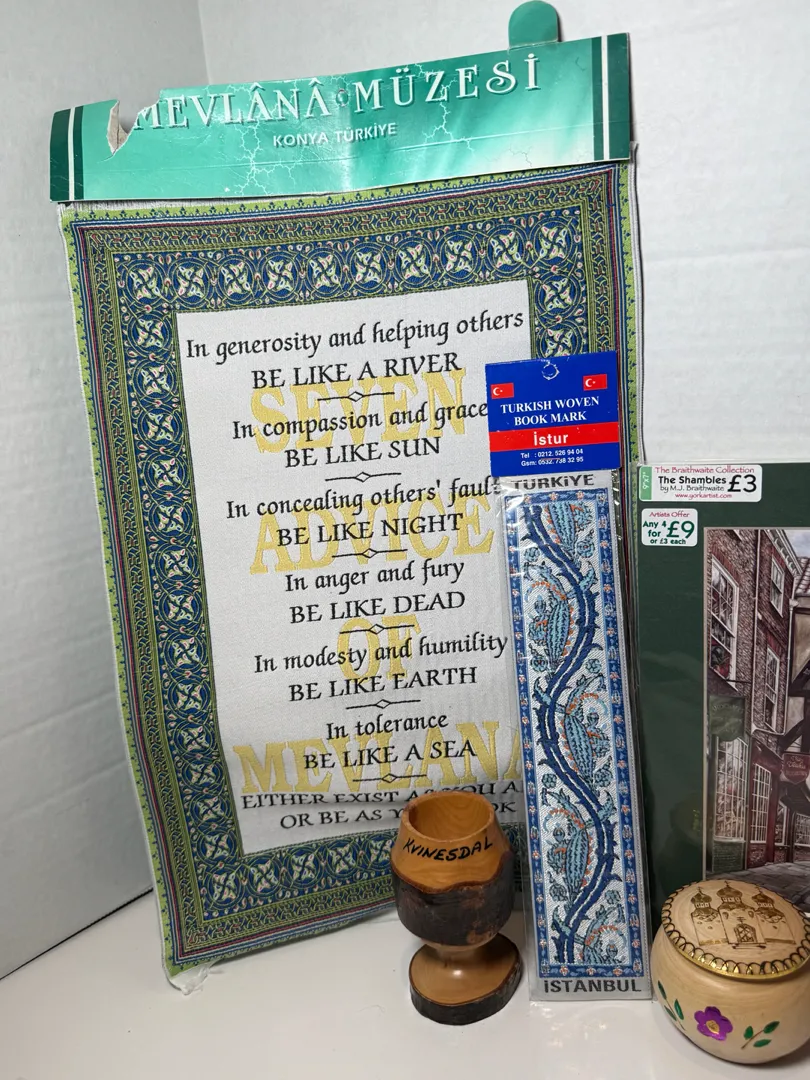 MEVLÂNÂ MÜZESİ
KONYA TÜRKİYE
In generosity and helping others
BE LIKE A RIVER
In compassion and grace
BE LIKE SUN
In concealing others' faults
BE LIKE NIGHT
In anger and fury
BE LIKE DEAD
In modesty and humility
BE LIKE EARTH
In tolerance
BE LIKE A SEA
EITHER EXIST AS YOU A
OR BE AS
SEVEN
ADVICE
OF
MEVLANA
TURKISH WOVEN
BOOK MARK
İstur
Tel : 0212. 526 94 04
Gsm: 0532. 738 32 95
TÜRKİYE
İSTANBUL
KVINESDAL
9"x7"
The Braithwaite Collection
The Shambles £3
by M.J. Braithwaite
www.yorkartist.com
Artists Offer
Any 4
for £9
or £3 each